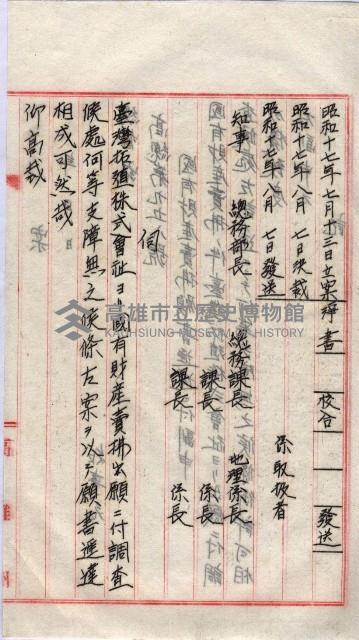 昭和十七年七月十三日立案 淨書 校合 發送
昭和十七年八月 七日決裁
昭和十七年八月 七日發送
係取扱者
知事 總務部長 總務課長 地理係長
課長 係長
課長 係長
伺
臺灣拓殖株式會社ヨリ國有財産賣拂出願ニ付調查
候處何等支障無之候條左案ヲ以テ願書進達
相成可然哉
仰高裁
高雄市立歷史博物館
KAOHSIUNG MUSEUM OF HISTORY
高雄州